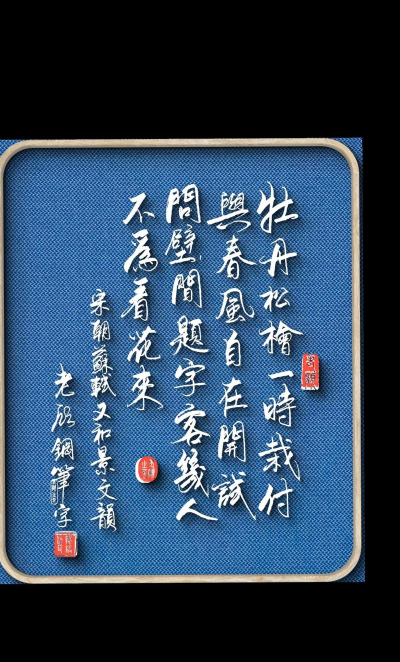 牡丹松檜一時栽付
與春風自在開試
問壁間題字客幾人
不為看花來
宋朝蘇軾又和景文韻
老顧鋼筆字